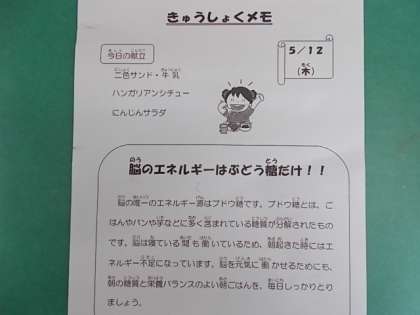 きゅうしょくメモ
今日の献立
5/12
(木)
二色サンド・牛乳
ハンガリアンシチュー
にんじんサラダ
脳のエネルギーはぶどう糖だけ!!
脳の唯一のエネルギー源はブドウ糖です。ブドウ糖とは、ご
はんやパンや芋などに多く含まれている糖質が分解されたもの
です。脳は寝ている間も働いているため、朝起きた時にはエ
ネルギー不足になっています。脳を元気に働かせるためにも、
朝の糖質と栄養バランスのよい朝ごはんを、毎日しっかりとり
ましょう。